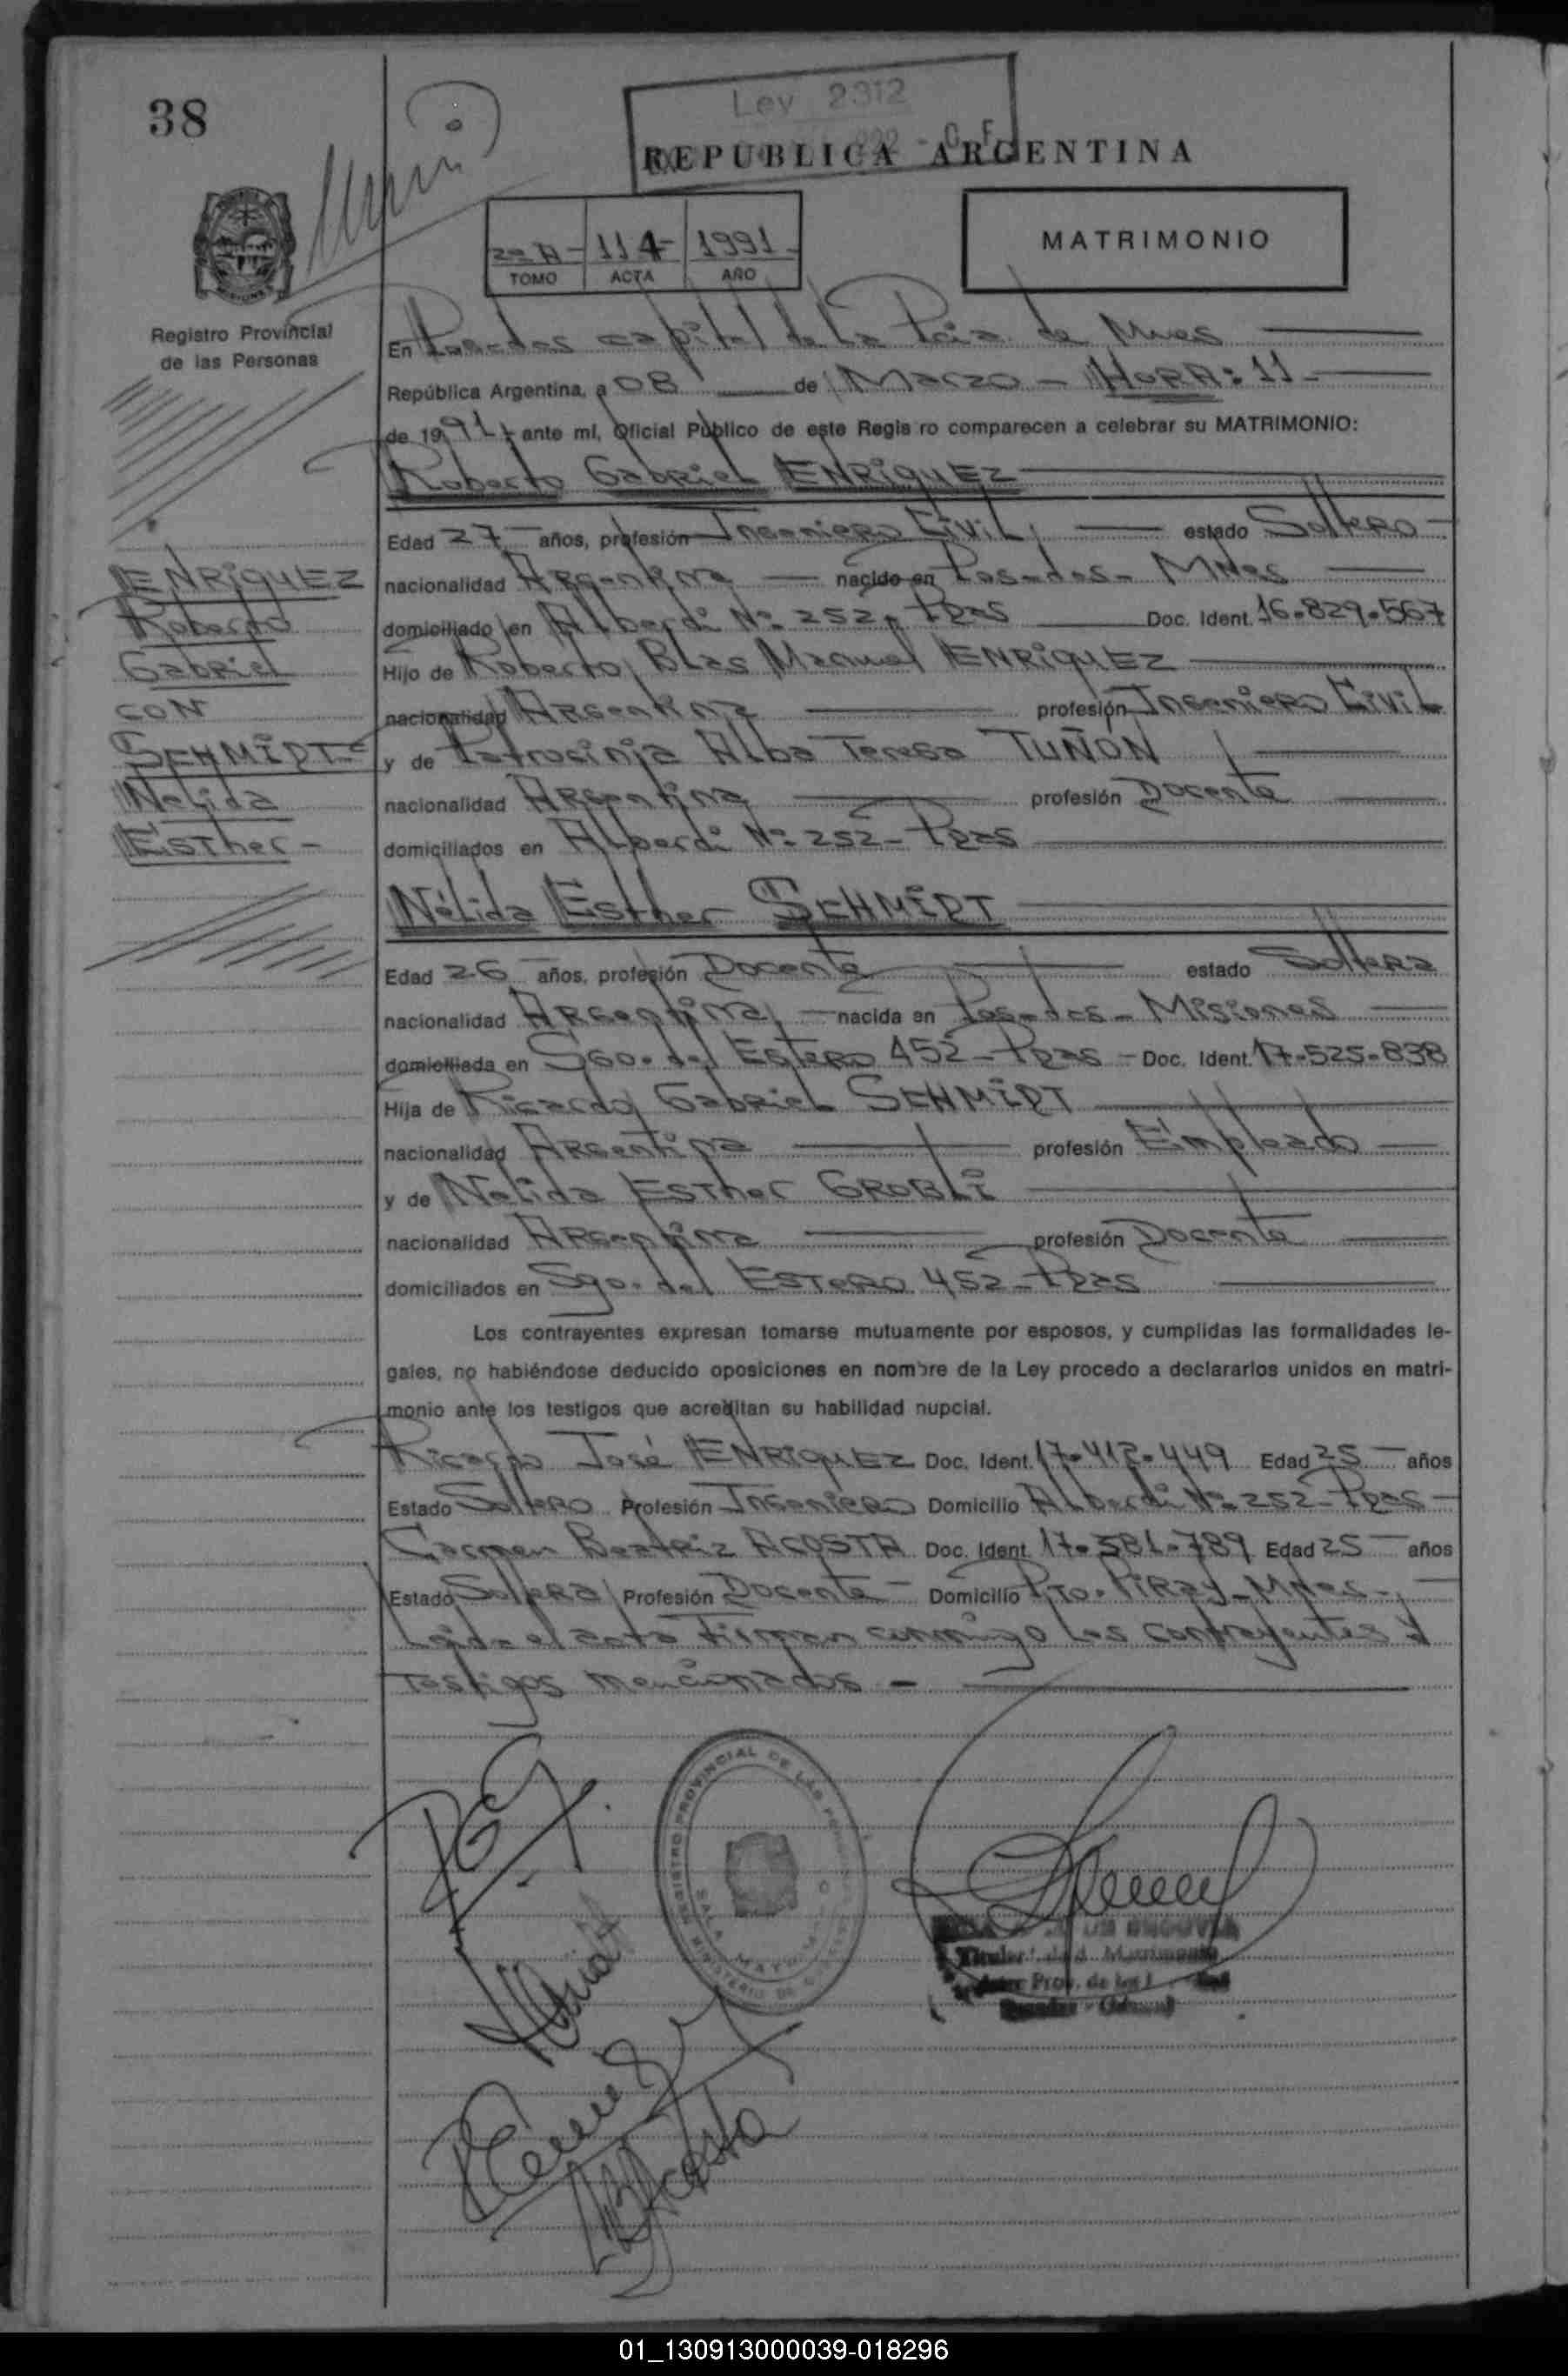 38
Ley 2312
REPUBLICA ARGENTINA
2º A - 114 - 1991 -
TOMO ACTA AÑO
MATRIMONIO
Registro Provincial
de las Personas
En Posadas capital de la Pcia. de Mnes
República Argentina, a 08 de Marzo - HORA: 11 -
de 1991 ante mí, Oficial Público de este Regis ro comparecen a celebrar su MATRIMONIO:
Roberto Gabriel ENRIQUEZ
Edad 27 años, profesión Ingeniero Civil estado Soltero
nacionalidad Argentina nacido en Posadas - Mnes
domiciliado en Alberdi Nº 252 - Pdas Doc. Ident. 16.829.567
Hijo de Roberto Blas Manuel ENRIQUEZ
nacionalidad Argentina profesión Ingeniero Civil
y de Patrocinia Alba Teresa TUÑON
nacionalidad Argentina profesión Docente
domiciliados en Alberdi Nº 252 - Pdas
ENRIQUEZ
Roberto
Gabriel
CON
SCHMIDT
Nelida
Esther -
Nélida Esther SCHMIDT
Edad 26 años, profesión Docente estado Soltera
nacionalidad Argentina nacida en Posadas - Misiones
domiciliada en Sgo. del Estero 452 - Pdas - Doc. Ident. 17.525.838
Hija de Ricardo Gabriel SCHMIDT
nacionalidad Argentina profesión Empleado
y de Nelida Esther GROBLI
nacionalidad Argentina profesión Docente
domiciliados en Sgo. del Estero 452 - Pdas
Los contrayentes expresan tomarse mutuamente por esposos, y cumplidas las formalidades le-
gales, no habiéndose deducido oposiciones en nombre de la Ley procedo a declararlos unidos en matri-
monio ante los testigos que acreditan su habilidad nupcial.
Ricardo José ENRIQUEZ Doc. Ident. 17.412.449 Edad 25 años
Estado Soltero Profesión Ingeniero Domicilio Alberdi Nº 252 - Pdas -
Carmen Beatriz ACOSTA Doc. Ident. 17.581.789 Edad 25 años
Estado Soltera Profesión Docente - Domicilio Pto. Piray - Mnes -
Leída el acta Firman conmigo los contrayentes y
testigos mencionados -
REGISTRO PROVINCIAL DE LAS
MINISTERIO DE
Titular Matrimonio
Prov. de las
BAcosta
01_130913000039-018296